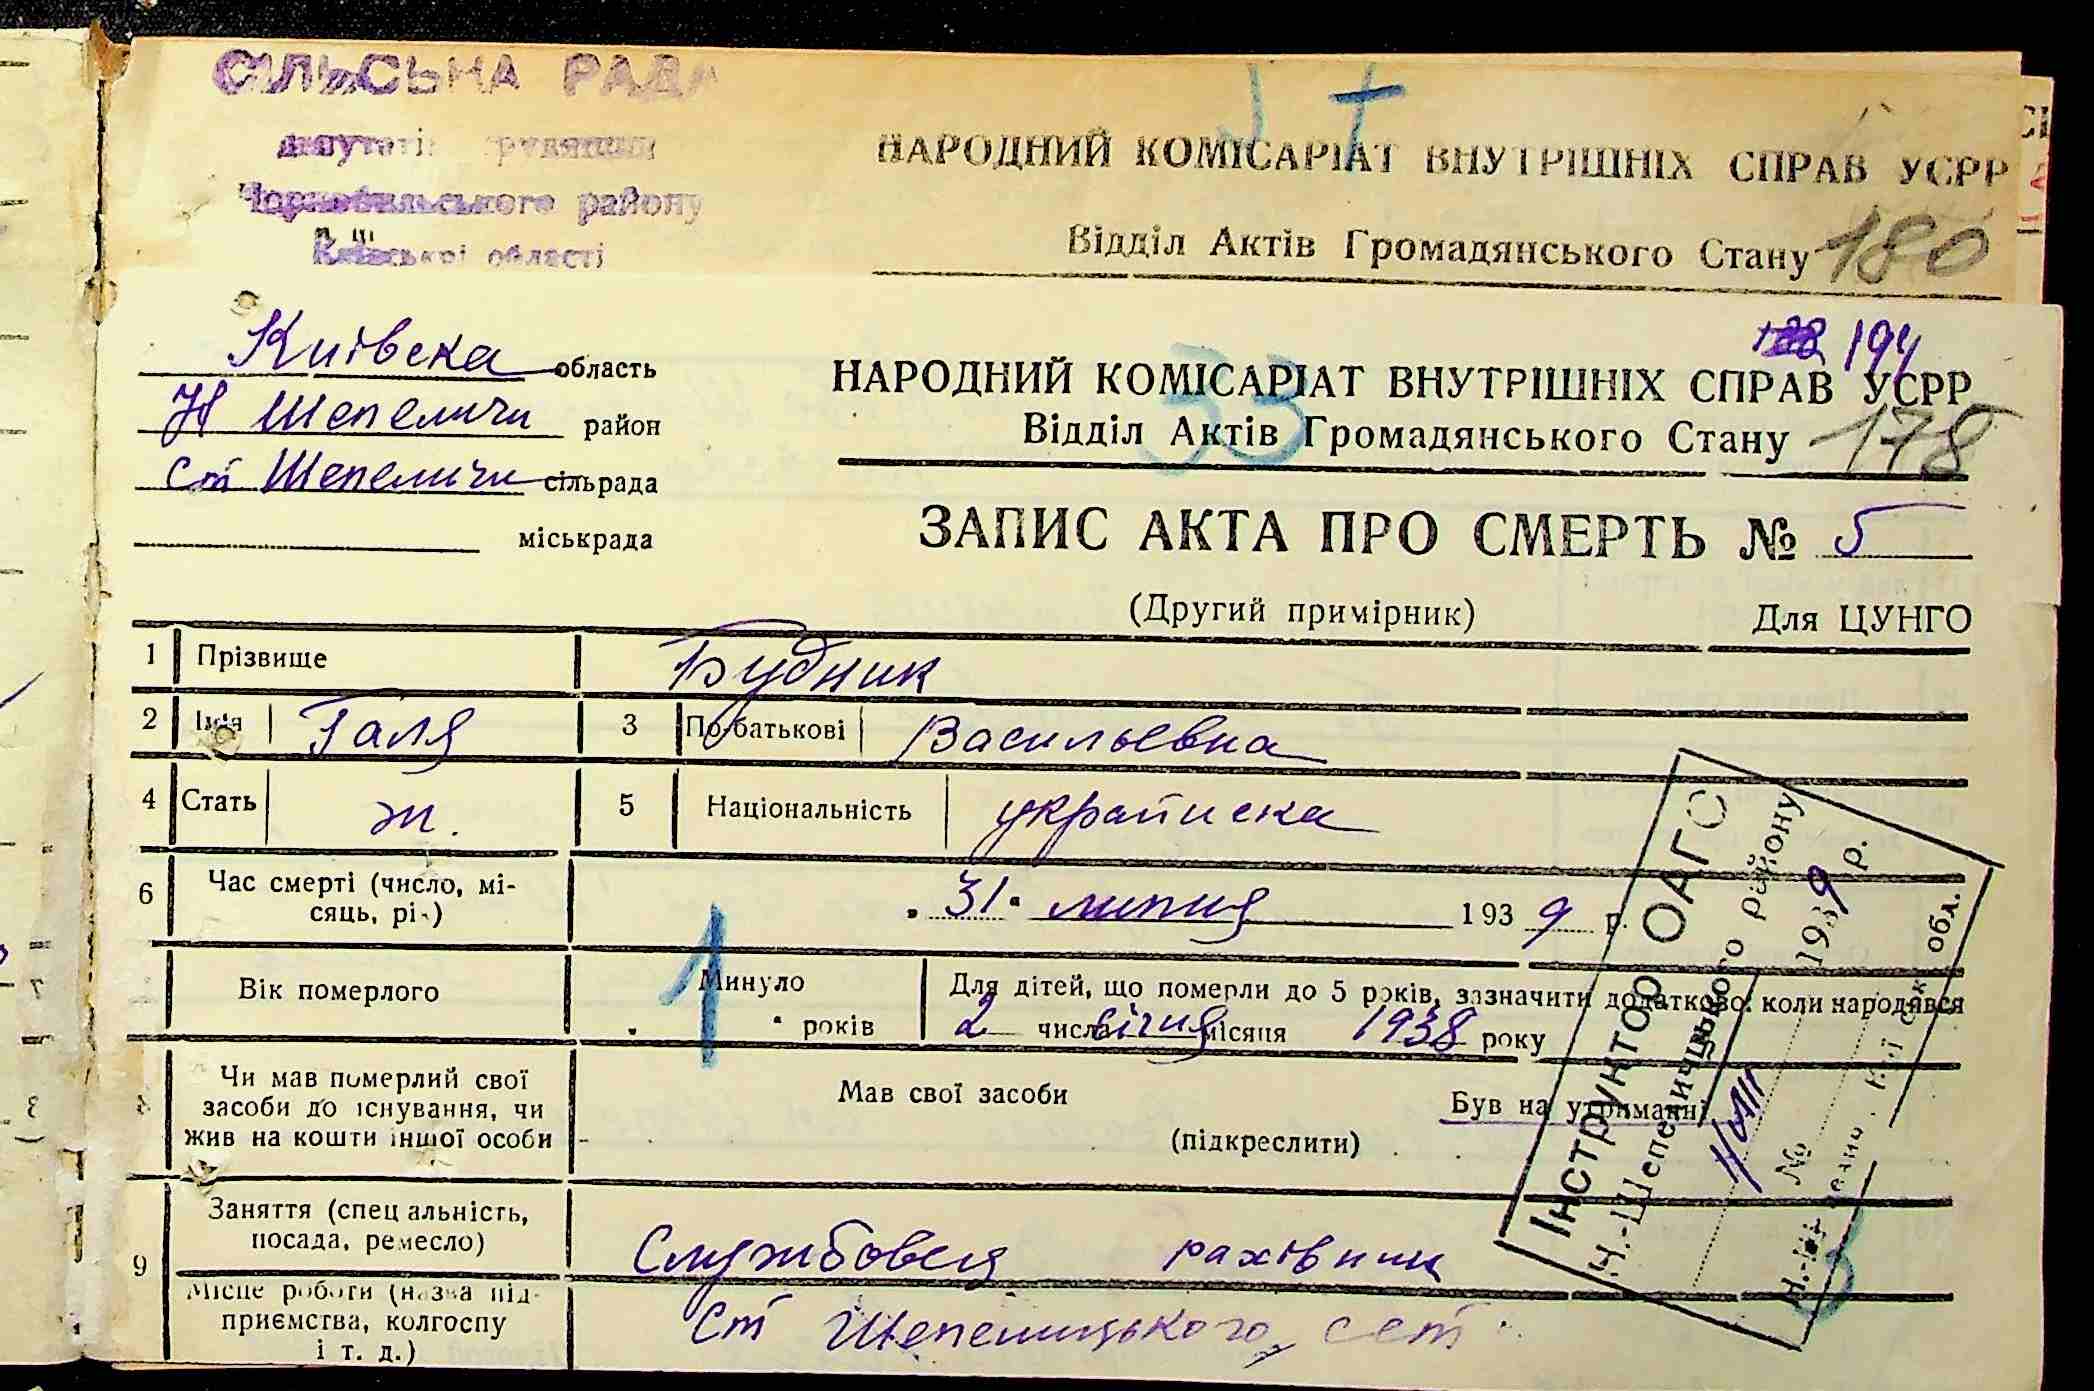 СІЛЬСЬКА РАДА
депутатів трудящих
Чорнобильського району
Київської області
НАРОДНИЙ КОМІСАРІАТ ВНУТРІШНІХ СПРАВ УСРР
Відділ Актів Громадянського Стану 180
Київска область
Н Шепеличи район
Ст Шепеличи сільрада
міськрада
194
НАРОДНИЙ КОМІСАРІАТ ВНУТРІШНІХ СПРАВ УСРР
33
Відділ Актів Громадянського Стану 178
ЗАПИС АКТА ПРО СМЕРТЬ № 5
(Другий примірник) Для ЦУНГО
1 Прізвище Будник
2 Імя Галя 3 По батькові Васильевна
4 Стать ж. 5 Національність українска
6 Час смерті (число, мі-
сяць, рік) „31“ липня 1939 р.
Вік померлого 1 Минуло
років
Для дітей, що померли до 5 років, зазначити додатково: коли народився
2 числа січня місяця 1938 року
8 Чи мав померлий свої
засоби до існування, чи
жив на кошти іншої особи
Мав свої засоби Був на утриманні
(підкреслити)
9 Заняття (спеціальність,
посада, ремесло) Службовея рахівник
Місце роботи (назва під-
приємства, колгоспу
і т. д.) Ст Шепелицького сст
Інструктор ОАГС
Н.-Шепелицького району
1939 р.
№
обл.
3